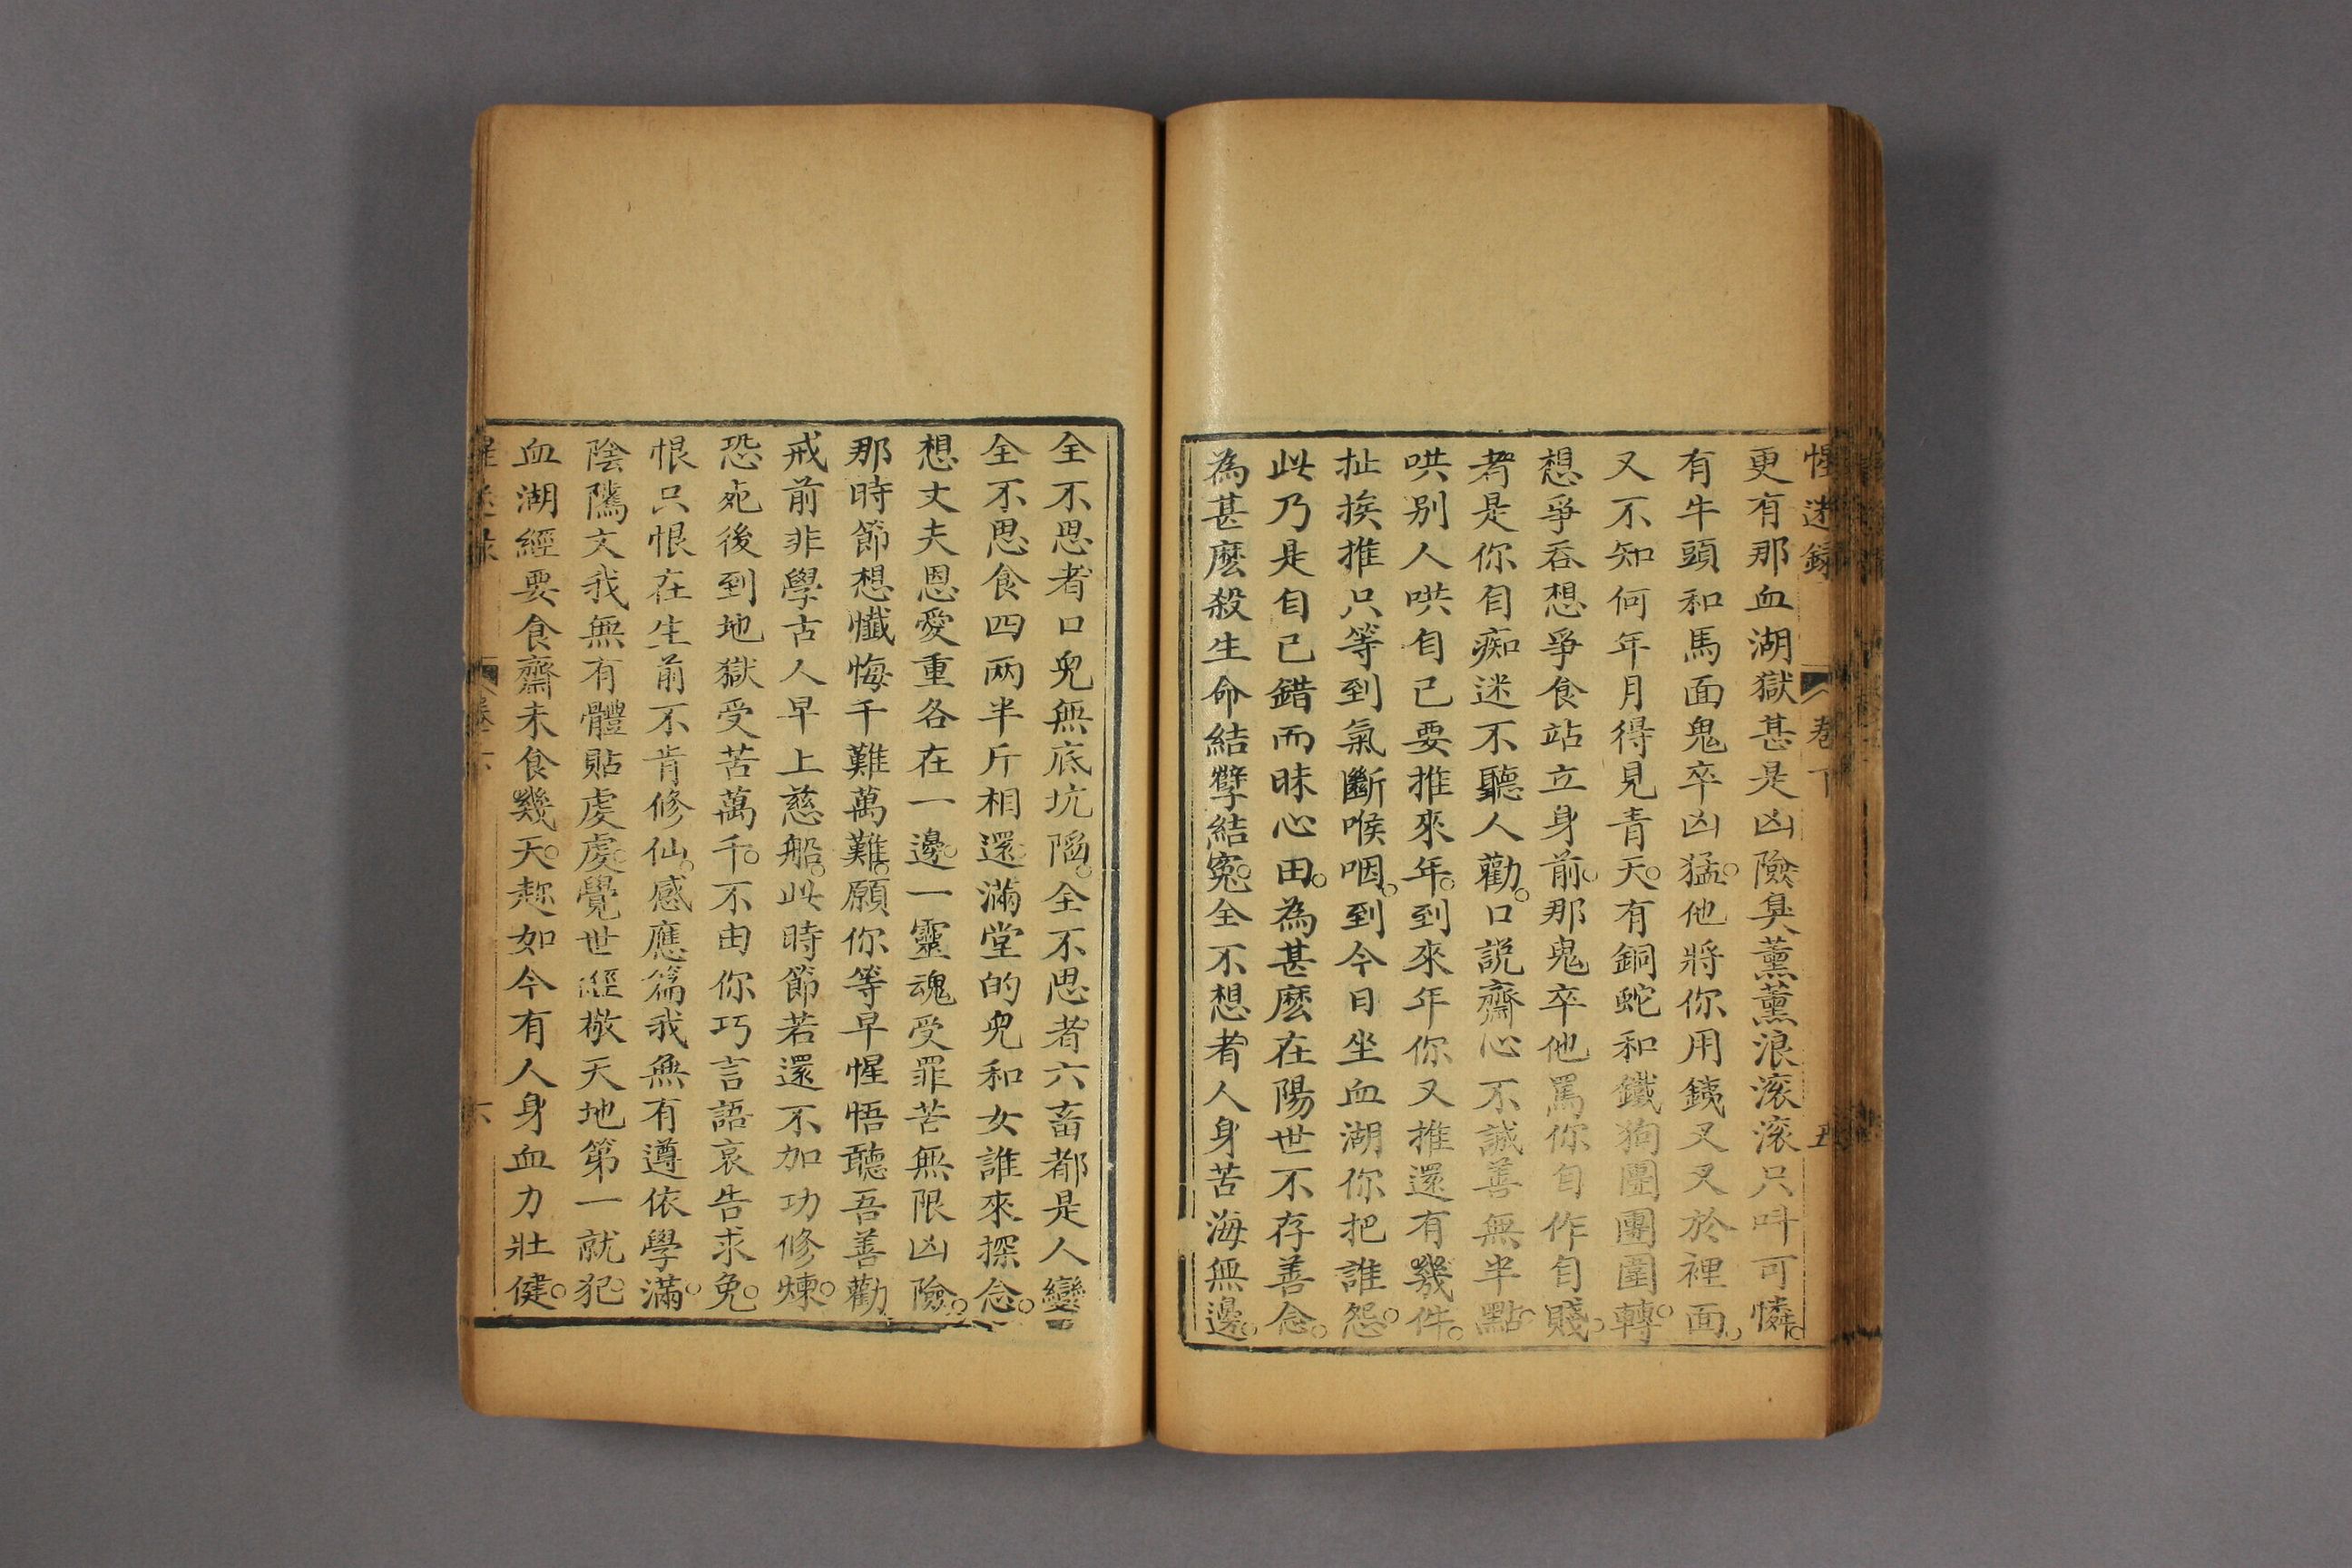 惺迷錄 卷下 五
更有那血湖獄甚是凶險臭薰薰浪滚滚只叫可憐。
有牛頭和馬面鬼卒凶猛。他將你用銕叉叉於裡面。
又不知何年月得見青天。有銅蛇和鐵狗團團圍轉。
想爭吞想爭食站立身前。那鬼卒他罵你自作自賤。
者是你自痴迷不聽人勸。口説齋心不誠善無半點。
哄别人哄自己要推來年。到來年你又推還有幾件。
扯挨推只等到氣斷喉咽。到今日坐血湖你把誰怨。
此乃是自己錯而昧心田。為甚麽在陽世不存善念。
為甚麽殺生命結孽結寃。全不想者人身苦海無邊。
全不思者口皃無底坑陷。全不思者六畜都是人變
全不思食四两半斤相還。滿堂的皃和女誰來探念。
想丈夫恩愛重各在一邊。一靈魂受罪苦無限凶險。
那時節想懺悔千難萬難。願你等早惺悟聽吾善勸
戒前非學古人早上慈船。此時節若還不加功修煉。
恐死後到地獄受苦萬千。不由你巧言語哀告求免。
恨只恨在生前不肯修仙。感應篇我無有遵依學滿。
陰隲文我無有體貼處處。覺世經敬天地第一就犯。
血湖經要食齋未食幾天。趂如今有人身血力壯健。